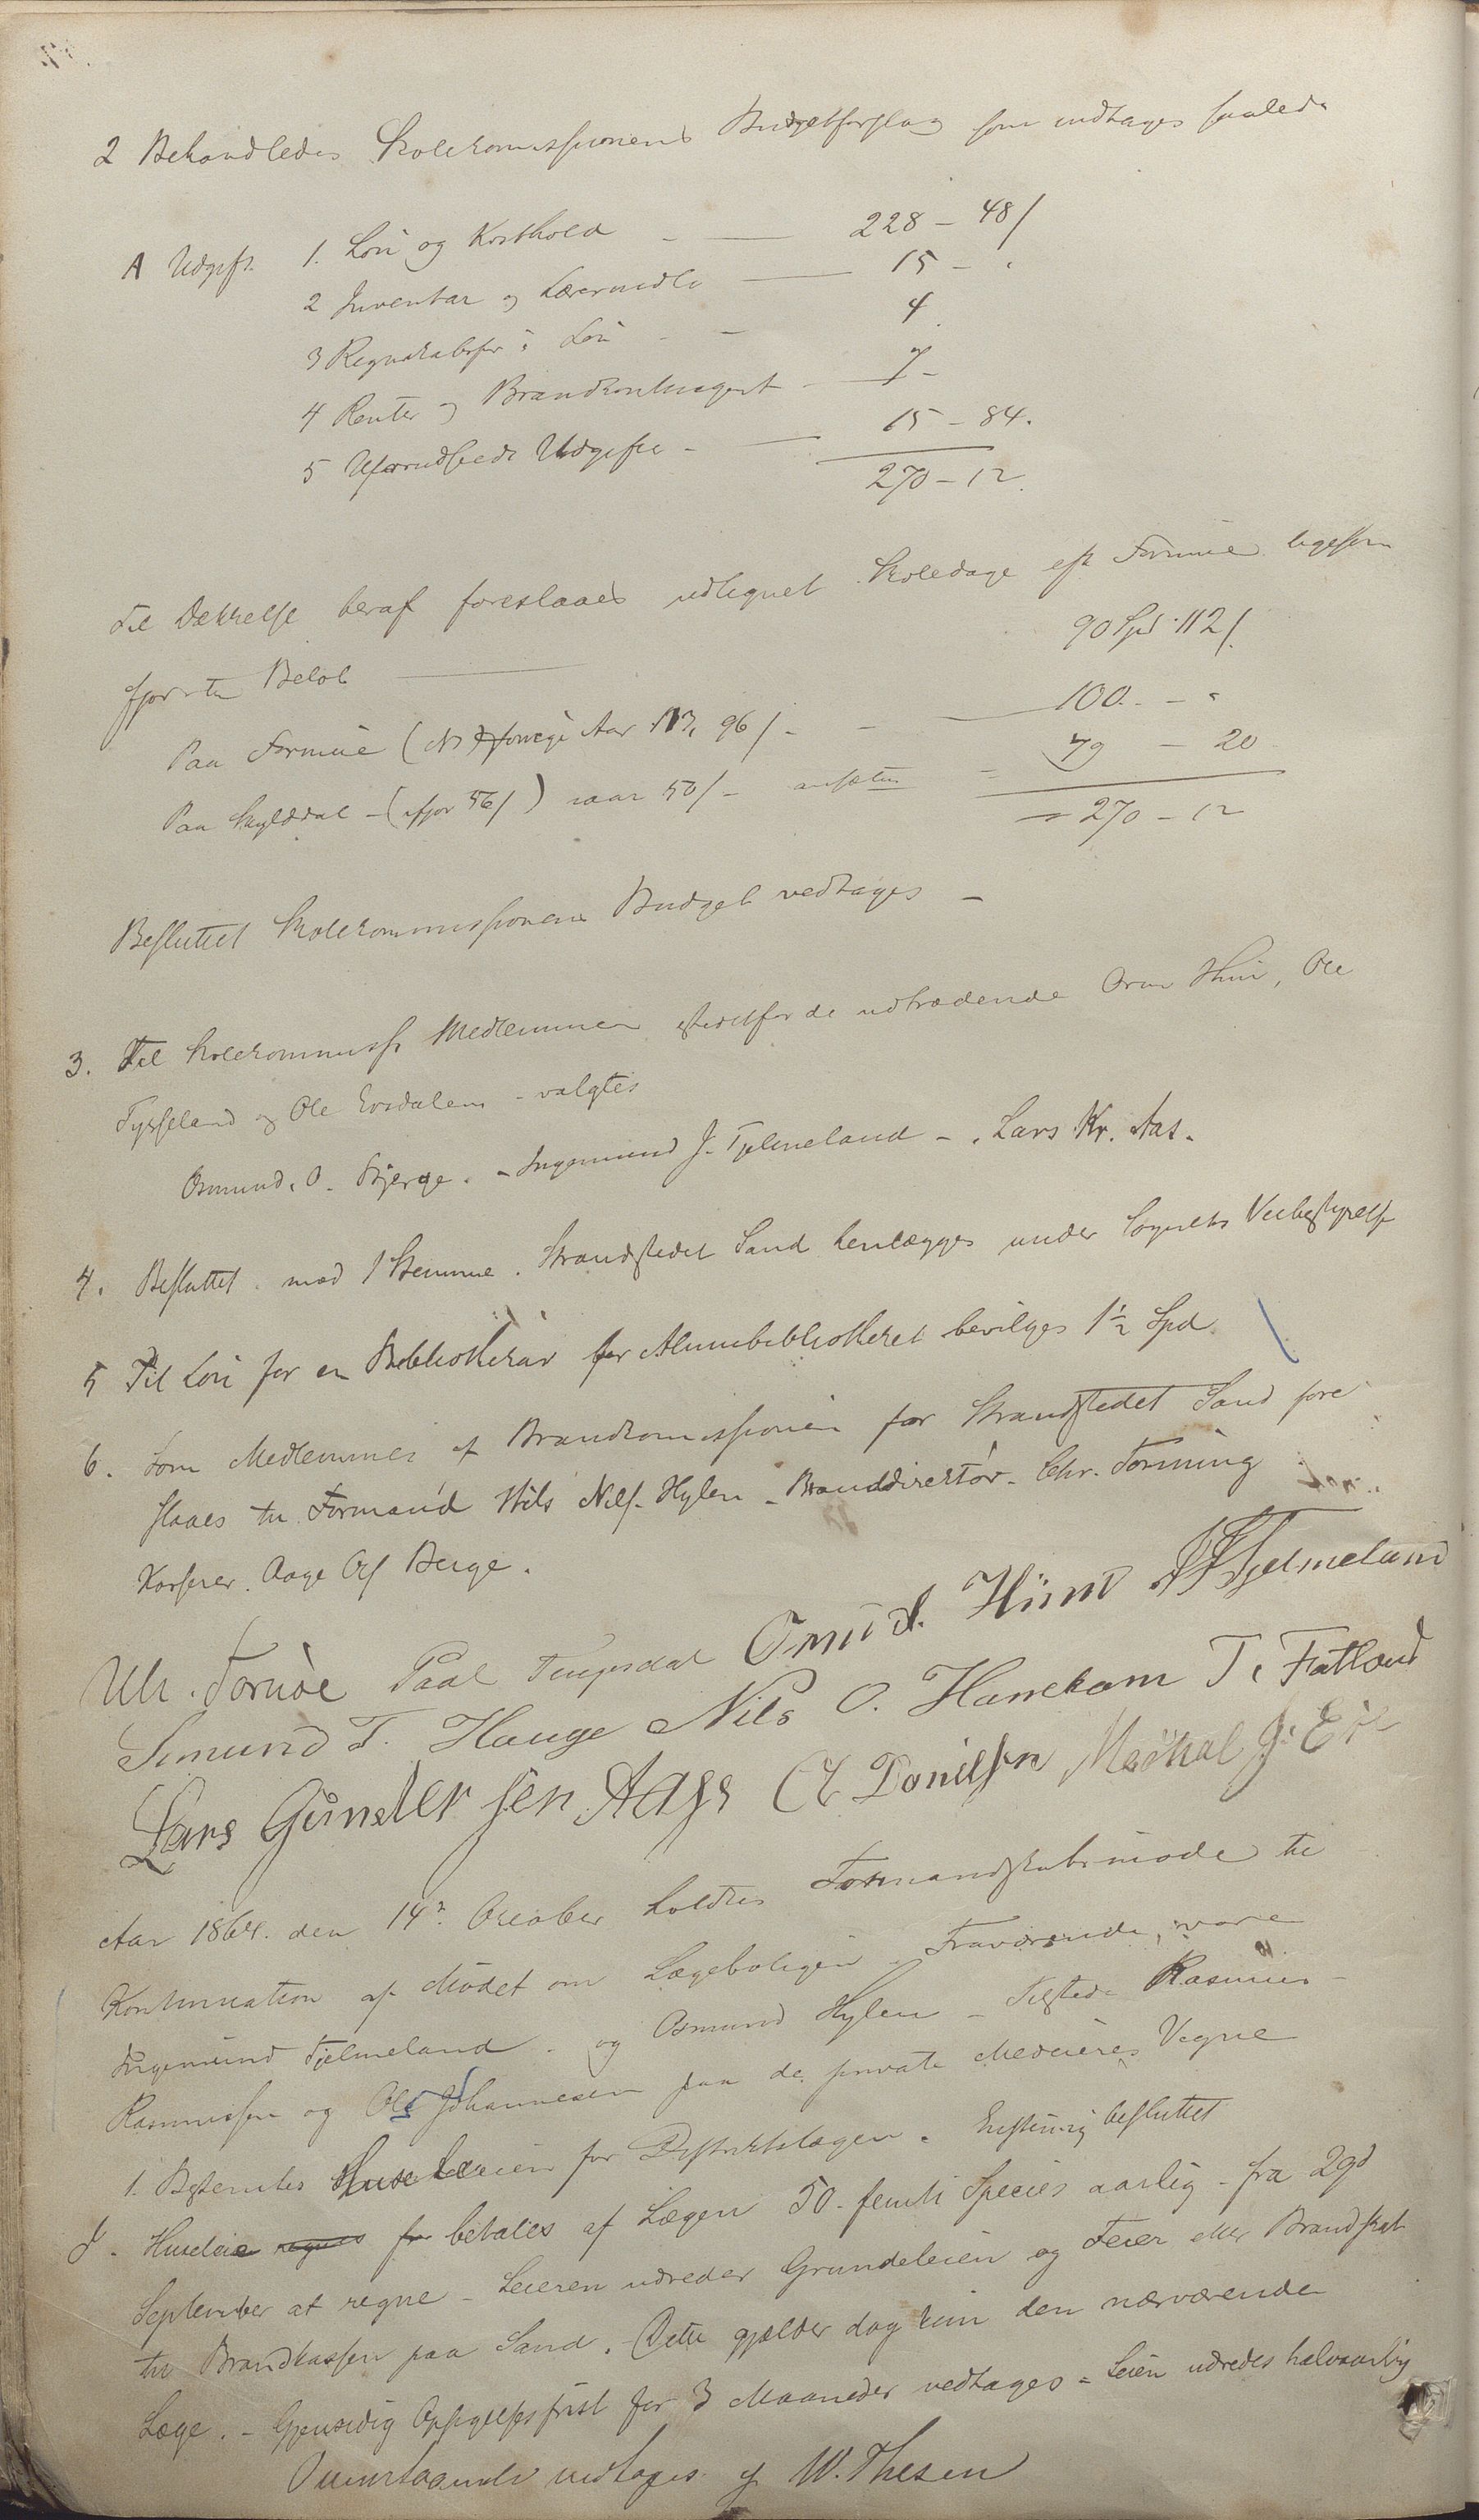 2 Behandledes Skolekommissionens Budgetforslag som vedtages saaledes
A Udgift 1. Løn og Kosthold - — 228 - 48/
2 Inventar og Læremidle — 15 - "
3 Regnskabsfør: Løn - - 4
4 Renter og Brandkontingent - 7 -
5 Uforudseede Udgifter - — 15 - 84.
270 - 12.
Til Dækkelse heraf foreslaaes udlignet Skoledage eft Formue ligesom
ifjor et Beløb — 90 Spd 112/.
Paa Formue ( forrige Aar 113, 96/ - - 100. - "
Paa Skylddal - (ifjor 56/) iaar 50/ - ansættes = 79 - 20
= 270 - 12
Besluttet Skolekommissionens Budget vedtages -
3. Til Skolekommiss Medlemmer istedetfor de udtrædende Orm Hiim, Ole
Tysseland og Ole Eersdalen - valgtes
Osmund. O. Bjerge. - Ingemund J. Tjelmeland - . Lars Kr. Aas.
4. Besluttet mod 1 Stemme. Strandstedet Sand henlægges under Sognets Veibestyrelse
5 Til Løn for en Bibliothekar for Almuebibliotheket bevilges 1½ Spd.
6. Som Medlemmer af Brandkommissionen for Strandstedet Sand fore
slaaes til Formand Nils Nils. Hylen - Branddirektør - Chr. Torming
Kasserer. Aage Ols Berge.
Ulr. Tornøe Paal Tengesdal Orm d. Hiim J J Tjelmeland
Simund T. Hauge Nils O. Hanekam T. Fatland
Lars Gundersen Aage C Danielsen Mikal J. Eie
Aar 1864. den 14de October holdtes Formandskabsmøde til
Kontinuation af Mødet om Lægeboligen. Fraværende, vare
Ingemund Tjelmeland. og Osmund Hylen - Tilstede Rasmus
Rasmussen og Ole Johannesen paa de private Medeieres Vegne
1. Bestemtes Husleien for Distriktslægen. Enstemig besluttet
J. Husleie regnes for betales af Lægen 50 - femti Species aarlig - fra 29d
September at regne - Leieren udreder Grundeleien og Feier eller Brandskat
til Brandkassen paa Sand. - Dette gjælder dog kun den nærværende
Læge. - Gjensidig Opsigelsesfrist for 3 Maaneder vedtages - Leien udredes halvaarlig
Ovenstaaende vedtages af W. Thesen